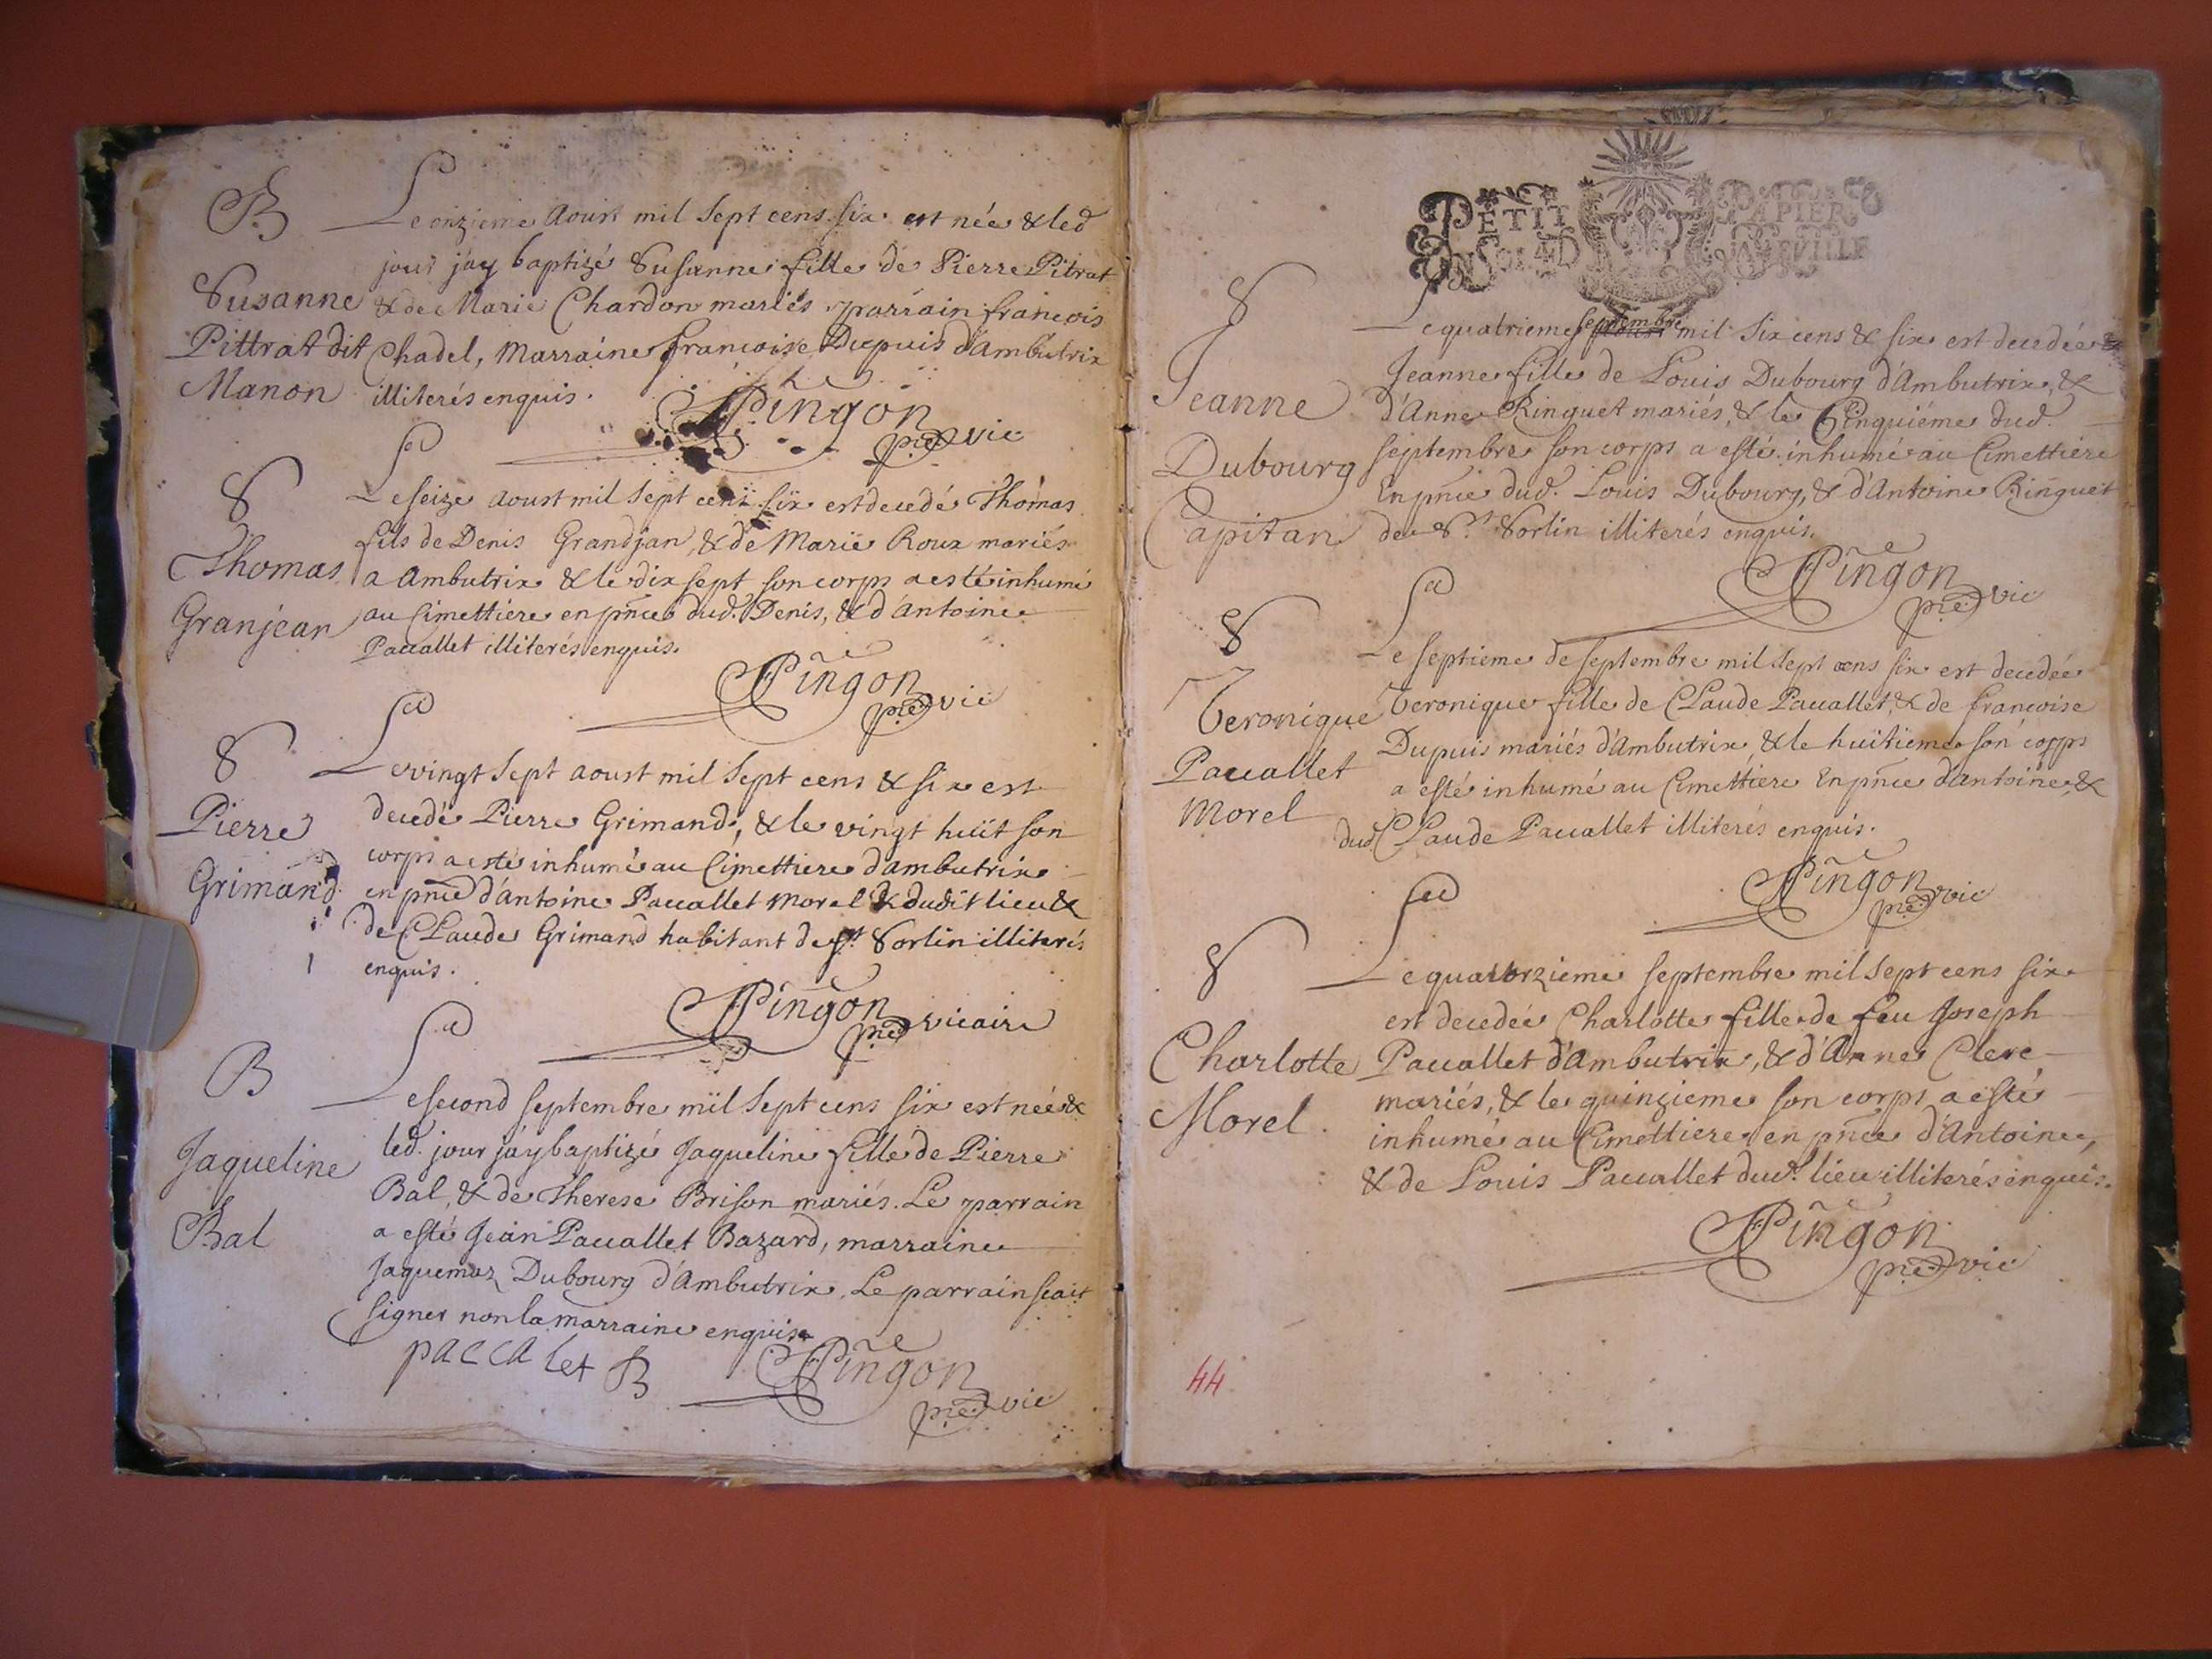 B
Le onzieme Aoust mil sept cens six est née & led
jour jay baptizé Susanne fille de Pierre Pitrat
Susanne
& de Marie Chardon mariés parrain francois
Pittrat dit
Chadel, Marraine francoise Dupuis d'Ambutrix
Manon
illiterés enquis.
Pingon
pre vic
S
Le seize aoust mil sept cens six est decedé Thomas
fils de Denis Grandjan, & de Marie Roux mariés
Thomas
a Ambutrix & le dix sept son corps a esté inhumé
Granjean
au Cimettiere en pnce dud. Denis, & d'antoine
Pacallet illiterés enquis.
Pingon
pre vic
S
Le vingt sept aoust mil sept cens & six est
Pierre
decedé Pierre Grimand, & le vingt huit son
corps a esté inhumé au Cimettiere d'ambutrix
Grimand
en pnce d'antoine Pacallet Morel & dudit lieu &
de Claude Grimand habitant de st. Sorlin illiterés
enquis.
Pingon
pre vicaire
B
Le second septembre mil sept cens six est née &
led. jour j'ay baptizé Jaqueline fille de Pierre
Jaqueline
Bal, & de Therese Brison mariés. Le parrain
Bal
a esté Jean Pacallet Bazard, marraine
Jaquemaz Dubourg d'Ambutrix, Le parrain scait
signer non la marraine enquis.
paccalet B
Pingon
pre vic
PETIT PAPIER
S
Le quatrieme septembre mil six cens & six est decedée
Jeanne fille de Louis Dubourg d'Ambutrix, &
Jeanne
d'Anne Ringuet mariés, & le Cinquiéme dud.
Dubourg
septembre son corps a esté inhumé au Cimettiere
En pnce dud. Louis Dubourg, & d'Antoine Ringuet
Capitan
de St. Sorlin illiterés enquis.
Pingon
pre vic
S
Le septieme de septembre mil sept cens six est decedée
Veronique
Veronique fille de Claude Pacallet, & de francoise
Dupuis mariés d'Ambutrix, & le huitieme son copps
Pacallet
a esté inhumé au Cimettiere En pnce d'antoine, &
Morel
dud. Claude Pacallet illiterés enquis.
Pingon
pre vic
S
Le quatorzieme septembre mil sept cens six
est decedée Charlotte fille de feu Joseph
Charlotte
Pacallet d'Ambutrix, & d'Anne Clere
Morel
mariés, & le quinzieme son corps a esté
inhumé au Cimettiere en pnce d'Antoine,
& de Louis Pacallet dud. lieu illiterés enquis.
Pingon
pre vic
44